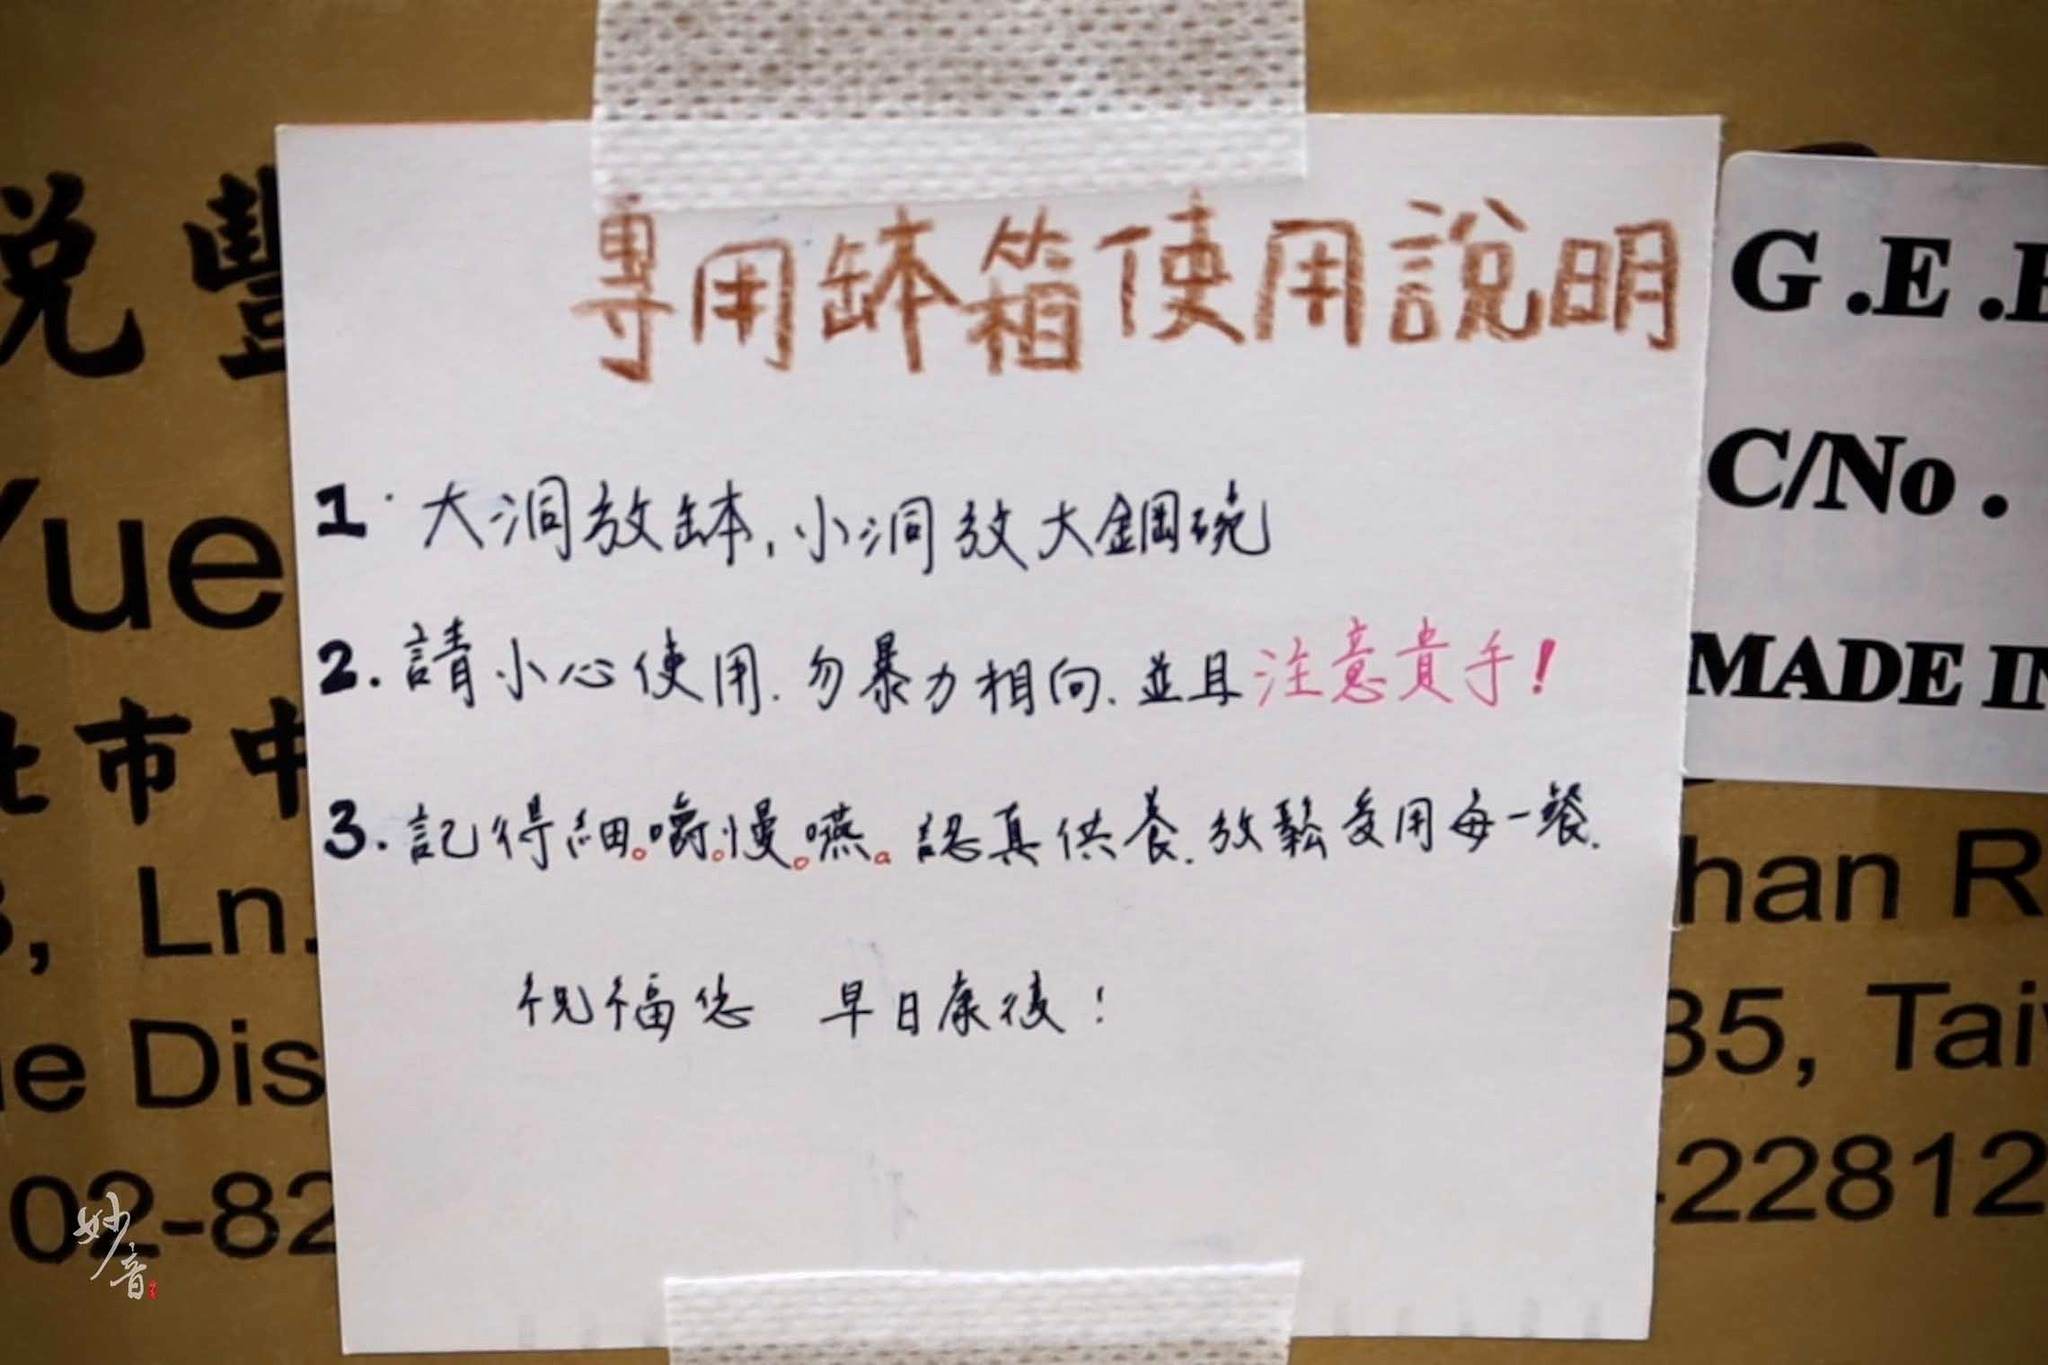 專用缽箱使用說明
1. 大洞放缽，小洞放大鋼碗
2. 請小心使用.勿暴力相向.並且注意貴手!
3. 記得細。嚼。慢。嚥。認真供養.放鬆受用每一餐.
祝福您 早日康復!
悅豐
G.E.
C/No.
MADE IN
Yue
市中
Ln.
han R
e Dis
35, Tai
02-82
-22812
妙音